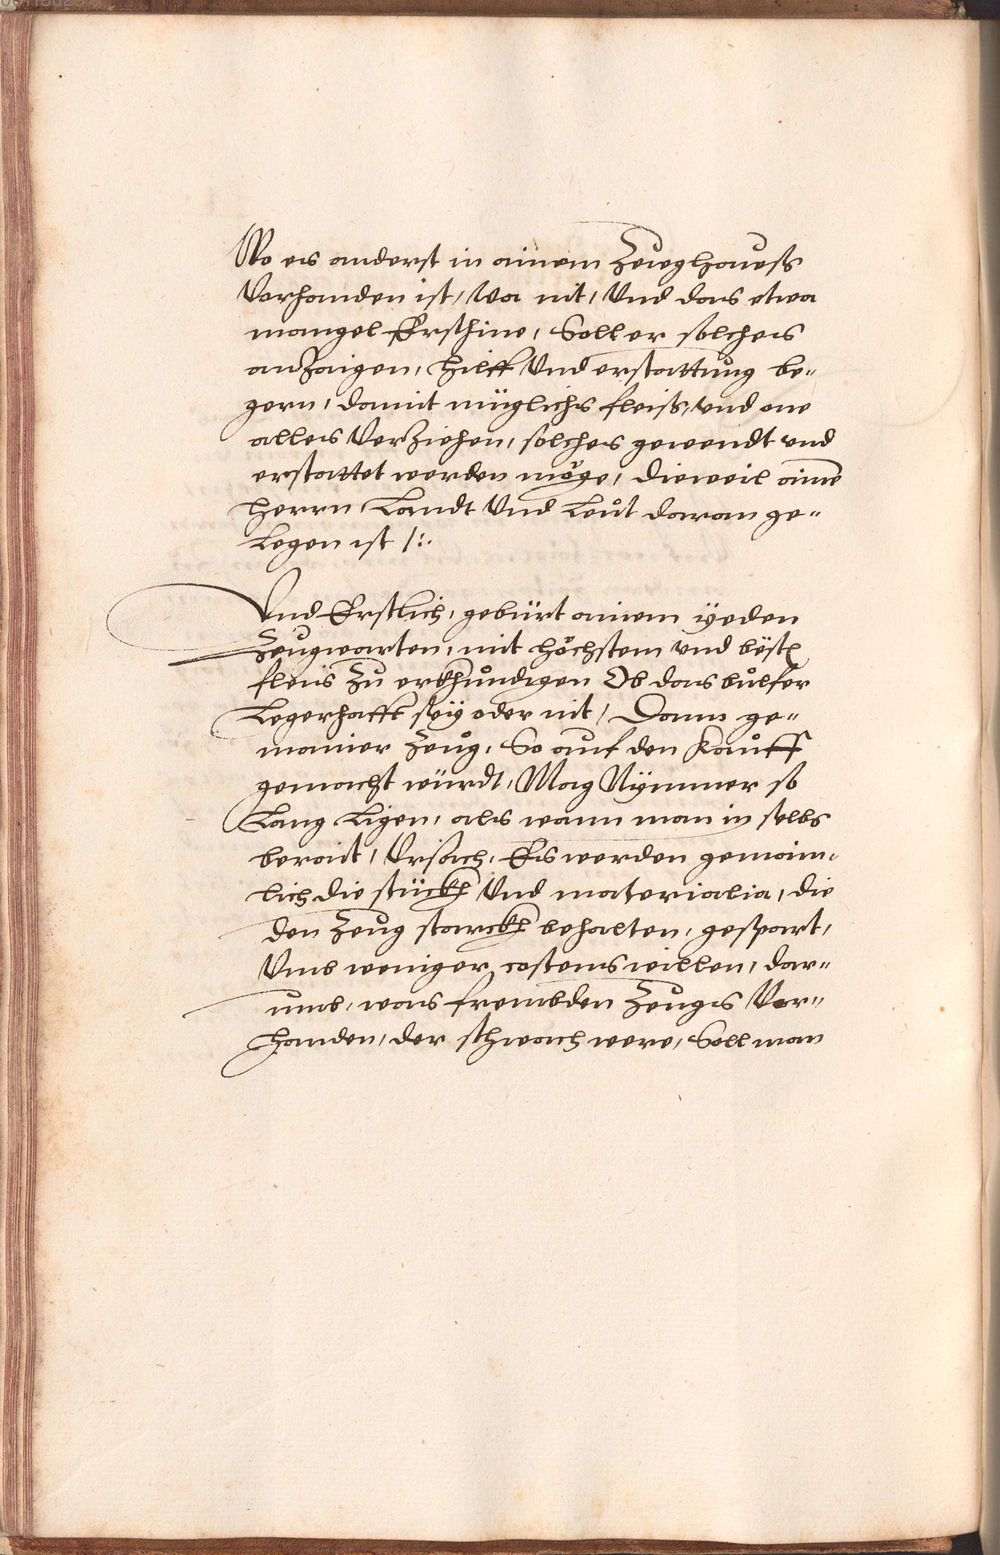 Wo es anderst in ainem Zeüghaüeß
Vorhanden ist, wa nit, Vnd das etwa
mangel Erschine, Soll er solches
anzaigen, hilff Vnd erstattung be-
gern, damit müglichs fleiß, vnd one
alles Verziehen, solches gewendt vnd
erstattet werden möge, dieweil aine
herrn, Landt Vnd Leüt daran ge-
legen ist /:.
Vnd Erstlich, gebürt ainem yeden
Zeugwarten, mit höchstem vnd besten
fleis zu erkhündigen Ob das bulfer
Legerhafft seÿ oder nit, Dann ge-
mainer Zeüg, So auf den Kauff
gemacht würdt, Mag Nÿmmer so
Lang Ligen, als wann man in selbs
berait, Vrsach, Es werden gemain-
lich die stückh Vnd materialia, die
den Zeug starckh behalten, gespart,
Vmb weniger costens willen, dar-
umb, was frembden Zeugs Vor-
handen, der schwach were, Soll man